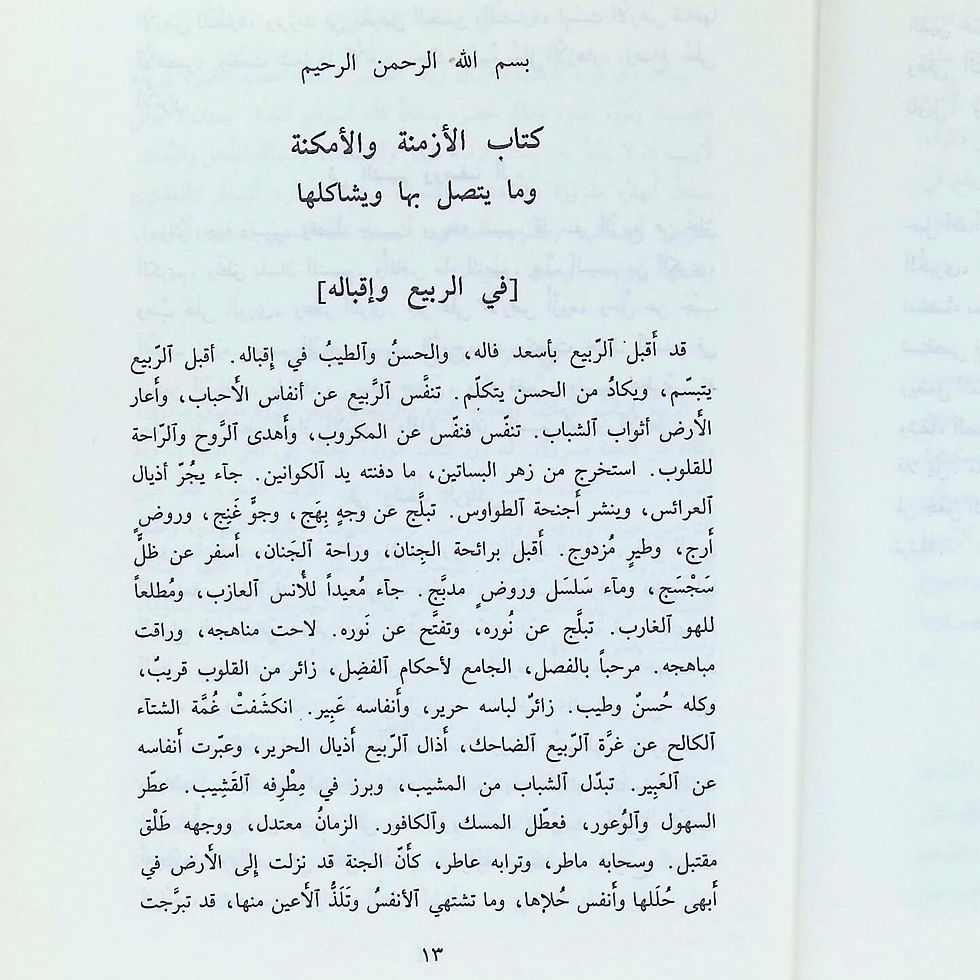 بسم الله الرحمن الرحيم
كتاب الأزمنة والأمكنة
وما يتصل بها ويشاكلها
[في الربيع وإقباله]
قد أَقبل ٱلرّبيع بأسعد فاله، والحسنُ وٱلطيبُ في إِقباله. أقبل ٱلرّبيع
يتبسّم، ويكادُ من الحسن يتكلّم. تنفَّس الرَّبيع عن أنفاس الأَحباب، وأَعار
الأَرض أثواب ٱلشباب. تنفّس فنفّس عن المكروب، وأَهدى الرَّوح وٱلرّاحة
للقلوب. استخرج من زهر البساتين، ما دفنته يد ٱلكوانين. جآء يجُرّ أذيال
ٱلعرائس، وينشر أَجنحة الطواوس. تبلَّج عن وجهٍ بِهَج، وجوٍّ غَنِج، وروضٍ
أَرج، وطيرٍ مُزدوج. أَقبل برائحة الجِنان، وراحة الجَنان، أَسفر عن ظلٍّ
سَجْسَج، ومآء سَلسَل وروضٍ مدبَّج. جآء مُعيداً للأُنس ٱلعازب، ومُطلعاً
للهو ٱلغارب. تبلَّج عن نُوره، وتفتَّح عن نَوره. لاحت مناهجه، وراقت
مباهجه. مرحباً بالفصل، الجامع لأحكام ٱلفضِل، زائر من القلوب قريبٌ،
وكله حُسنٌ وطيب. زائرٌ لباسه حرير، وأَنفاسه عَبِير. انكشَفتْ غُمَّة الشتآء
ٱلكالح عن غرَّة ٱلرّبيع الضاحك، أَذال ٱلرّبيع أَذيال الحرير، وعبّرت أَنفاسه
عن ٱلعَبِير. تبدّل ٱلشباب من المشيب، وبرز في مِطْرِفه ٱلقَشِيب. عطّر
السهول وٱلوُعور، فعطّل المسك وٱلكافور. الزمانُ معتدل، ووجهه طَلْق
مقتبل. وسحابه ماطر، وترابه عاطر، كأَنّ الجنة قد نزلت إِلى الأَرض في
أَبهى حُلَلها وأَنفس حُلاها، وما تشتهي ٱلأنفسُ وتَلَذُّ ٱلأَعين منها، قد تبرَّجت
١٣